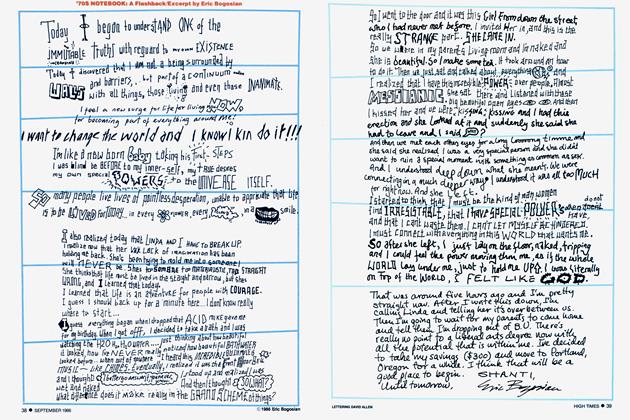 '70S NOTEBOOK: A Flashback/Excerpt by Eric Bogosian
Today, I began to understAND ONE of the
IMMUTABLE truths with reguard to EXISTENCE
Today I discovered that I am not a being surrounded by
WALLS and barriers, but part of a continuum
with all things, those living and even those INANIMATE.
I feel a new surge for life for living NOW,
for becoming part of everything around me!
I want to change the world and I know I kin do it!!!
I'm like a new born baby taking his first STEPS
I was blind BEFORE to my inner-self, my true desires
my own special POWERS to the UNIVERSE ITSELF.
So many people live lives of pointless desperation, unable to appreciate that life
is to be LIVED for today, in every flower, every in a smile.
I also realized today that LINDA AND I HAVE TO BREAK UP.
I realize now that her LACK of imagination has been
holding me back. She's been trying to mold me into someone I
will NEVER be. She's so SOMBRE TOO STRAIGHT
She thinks life must be lived in the straight and narrow but she's
WRONG, and I learned that today.
I learned that Life is an adventure for people with COURAGE.
I guess I should back up for a minute here I don't know really
where to start...
I guess everything began when I dropped that ACID Mike gave me
for my birthday. When I got off, I decided to take a bath and I was
watching the H2O, HOWEVER just thinking about how beautiful
it looked, how I've NEVER really noticed how beautiful BATHWATER
looked before when out of nowhere I heard this INCREDIBLE
MUSIC - like CHIMES. Eventually, I realized it was the front door
and I thought I stood up and realized I was
wet and naked And then I thought SO WHAT?
What difference does it make, really, in the GRAND SCHEME of things?
38 ● SEPTEMBER 1986
© 1986 Eric Bogosian
So I went to the door and it was this Girl From down the street
who I had never met before. I invited Her in, and this is the
really STRANGE part. SHE CAME IN.
So we were in my parents Living room and I'm naked and
she is beautiful. So I make some tea. It took around an hour
to do it. Then we just sat and talked about everything and
I realized that I have this incredible POWER over people. Almost
MESSIANIC. She sat there and listened with those
big beautiful open eyes And then
I kissed her and we were kissing & kissing and I had this
erection and she looked at it and suddenly she said she
had to leave and I said
and then we met each others eyes for a long looooong timmme and
she said she realized I was a very special person and she didn't
want to ruin a special moment with something as common as sex.
And I understood deep down what she meant. We were
connecting in a much deeper way I understood it was all too MUCH
for right now. And she LEFT.
I started to think that I must be the kind of man women
find IRRESISTABLE, that I have SPECIAL POWER others do not HAVE,
and that I can't waste them. I CAN'T LET MYSELF BE HINDERED.
I must connect with everything in this WORLD that wants me.
So after she left, I just lay on the floor, naked, tripping
and I could feel the power moving thru me, as if the whole
WORLD lay under me, just to hold me UP. I was literally
on top of the WORLD, I FELT LIKE GOD.
That was around five hours ago and I'm pretty
straight now. After I write this down, I'm
calling Linda and telling her it's over between us.
Then I'm going to wait for my parents to come home
and tell them I'm dropping out of B.U. There's
really no point to a liberal arts degree now with
all the potential that is within me. I've decided
to take my savings ($300) and move to Portland,
Oregon for a while. I think that will be a
good place to begin. SHANTI,
Until tomorrow, Eric Bogosian
LETTERING DAVID ALLEN
HIGH TIMES ● 39